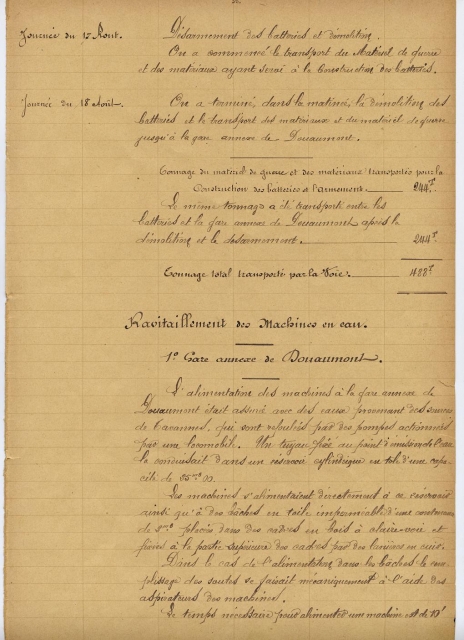 Journée du 17 Aout. Désarmement des batteries et démolition.
On a commencé le transport du Matériel de guerre
et des matériaux ayant servi à la Construction des batteries.
Journée du 18 Aout. On a terminé, dans la matinée, la démolition des
batteries et le transport des matériaux et du matériel de guerre
jusqu'à la gare annexe de Douaumont.
Tonnage du matériel de guerre et des matériaux transportés pour la
Construction des batteries et l'armement. 244T.
Le même tonnage a été transporté entre les
batteries et la gare annexe de Douaumont après la
démolition et le désarmement. 244T.
Tonnage total transporté par la Voie. 488T
Ravitaillement des Machines en eau.
1° Gare annexe de Douaumont.
L'alimentation des machines à la gare annexe de
Douaumont était assuré avec des eaux provenant des sources
de Tavannes, qui sont refoulées par des pompes actionnées
par une locomobile. Un tuyau fixé au point d'émission de l'eau
la conduisait dans un réservoir cylindrique en tôle d'une capa-
cité de
Les machines s'alimentaient directement à ce réservoir
ainsi qu'à des bâches en toile imperméable d'une contenance
de placées dans des cadres en bois à claire-voie et
fixées à la partie supérieure des cadres par des lanières en cuir.
Dans le cas de l'alimentation dans les bâches le rem-
plissage des soutes se faisait mécaniquement à l'aide des
aspirateurs des machines.
Le temps nécessaire pour alimenter une machine est de